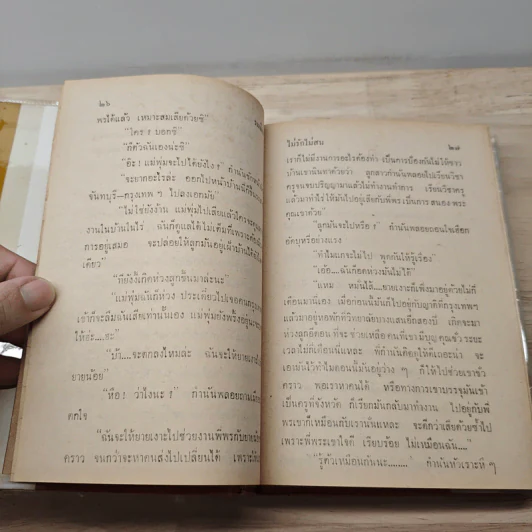 ๒๖
พรได้แล้ว เหมาะสมเสียด้วยซี"
"ใคร ! บอกซี"
"ก็ตัวฉันเองน่ะซี"
"อ๊ะ ! แม่พุ่มจะไปได้ยังไง !" กำนัน
"จะยากอะไรล่ะ ออกไปหน้าบ้านนี่ก็
จันทบุรี–กรุงเทพ ฯ ไปลงเอกมัย"
"ไม่ใช่ยังงั้น แม่พุ่มไปเสียแล้วใคร
งานในบ้านในไร่ ฉันก็ดูแลได้ไม่เต็มที่เพราะต้อง
การอยู่เสมอ จะปล่อยให้ลูกมันอยู่เฝ้าบ้านได้
เดียว"
"ที่ยังงี้เกิดห่วงลูกขึ้นมาล่ะนะ"
"แม่พุ่มฉันก็ห่วง ประเดี๋ยวไปเจอคนกรุงเทพ
เข้าก็จะลืมฉันเสียเท่านั้นเอง แม่พุ่มยังพริ้งอยู่
ให้อ่ะ....ฮะ"
"บ้า....จะตกลงไหมล่ะ ฉันจะให้ยาย
ยายน้อย"
"หือ ! ว่าไงนะ !" กำนันพลอยถาม
ตกใจ
"ฉันจะให้ยายเงาะไปช่วยงานพี่พรกับยาย
คราว จนกว่าจะหาคนส่งไปเปลี่ยนได้ เพราะ
ไม่รักไม่สน
๒๗
เราก็ไม่มีงานการอะไรต้องทำ เป็นการป้องกันไม่ให้ชาว
บ้านเขานินทาด้วยว่า ลูกสาวกำนันพลอยไปเรียนวิชา
ครูจนจบปริญญามาแล้วไม่ทำงานทำการ เรียนวิชาครู
แล้วมาทำไร่ ให้มันไปอยู่เสียกับพี่พร เป็นการ สนองพระ
คุณเขาด้วย"
"ลูกมันจะไปหรือ !" กำนันพลอยถอนใจเฮือก
"ทำไมแกจะไม่ไป พูกกันให้รู้เรื่อง"
"เอ้อ...ฉันก็อดห่วงมันไม่ได้"
"แหม หมั่นไส้....ยายเงาะก็เพิ่งมาอยู่ด้วยไม่กี่
เดือนมานี่เอง เมื่อก่อนมันก็ไปอยู่กับญาติที่กรุงเทพ ฯ
แล้วมาอยู่หอพักที่วิทยาลัยบางแสนอีกสองปี เกิดจะมา
ห่วงลูกอีตอน ที่จะ ช่วยเหลือ คนที่เขามีบุญ คุณชั่ว ระยะ
เวลาไม่กี่เดือนนี่แหละ พี่กำนันคิดดูให้ดีเถอะน่า จะ
เอามันไว้ทำไมตอนนี้มันอยู่ว่าง ๆ ก็ให้ไปช่วยเขาชั่ว
คราว พอเราหาคนได้ หรือทางการเขาบรรจุมันเข้า
เป็นครูที่จังหวัด ก็เรียกมันกลับมาทำงาน ไปอยู่กับพี่
พรเขาก็เหมือนกับเรานั่นแหละ จะดีกว่าเสียด้วยซ้ำไป
เพราะพี่พรเขาใจดี เรียบร้อย ไม่เหมือนฉัน...."
"รู้ตัวเหมือนกันนะ........" กำนันหัวเราะหึ ๆ